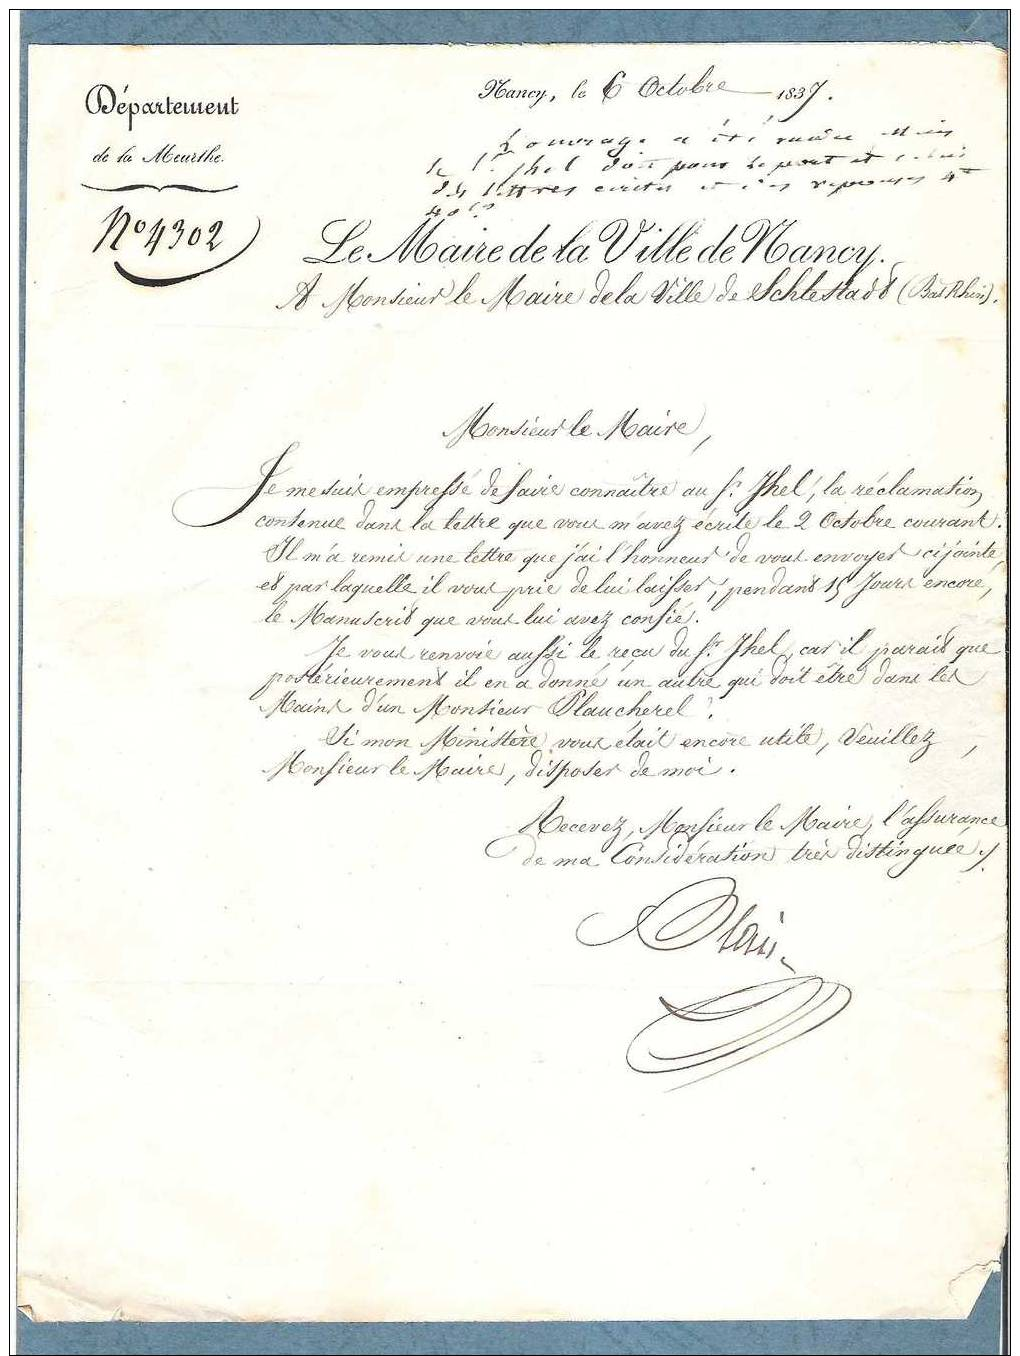 Département
de la Meurthe.
Nº 4302
Nancy, le 6 Octobre 1837.
L'ouvrage a été rendu mais
le Sr. Ihel doit pour le port et
des lettres écrites et des reponses
Le Maire de la Ville de Nancy.
A Monsieur le Maire de la Ville de Schlestadt (Bas Rhin).
Monsieur le Maire,
Je me suis empressé de faire connaître au Sr. Ihel, la réclamation
contenue dans la lettre que vous m'avez écrite le 2 Octobre courant.
Il m'a remis une lettre que j'ai l'honneur de vous envoyer ci jointe,
et par laquelle il vous prie de lui laisser, pendant 15 Jours encore,
le Manuscrit que vous lui avez confié.
Je vous renvoie aussi le reçu du Sr. Ihel, car il parait que
postérieurement il en a donné un autre qui doit être dans les
Mains d'un Monsieur Plaucherel.
Si mon Ministère vous était encore utile, Veuillez,
Monsieur le Maire, disposer de moi.
Recevez, Monsieur le Maire, l'assurance
de ma Considération très distinguée.